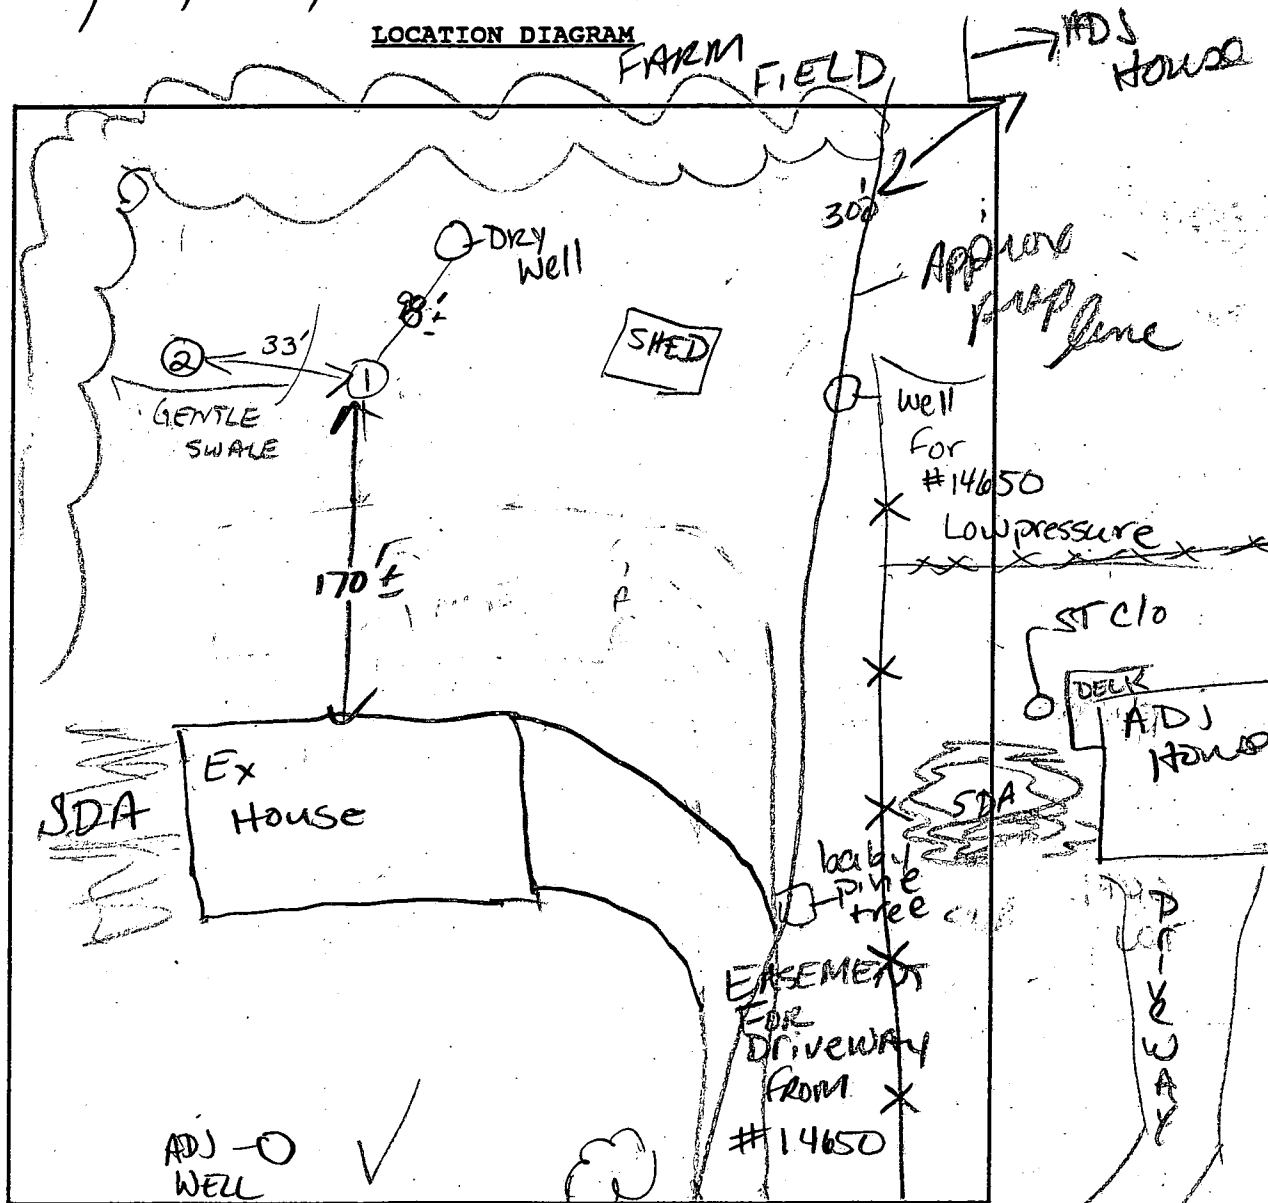 LOCATION DIAGRAM
FARM
FIELD
ADJ
HOUSE
300'
APPROX
prop line
DRY
Well
98'±
SHED
2
33'
1
GENTLE
SWALE
Well
For
#14650
Low pressure
170'±
ST C/O
DECK
ADJ
House
Ex
House
SDA
SDA
baby
pine
tree
EASEMENT
FOR
DRIVEWAY
FROM
#14650
DRIVEWAY
ADJ
WELL